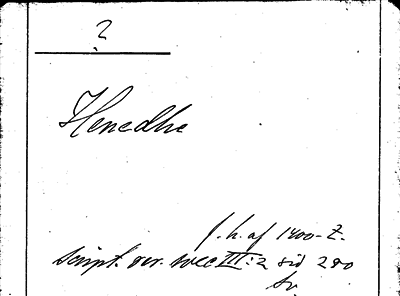 ?
Henedhe
f. h. af 1400-t.
Script. rer. svec III:2 sid 280
Sv.